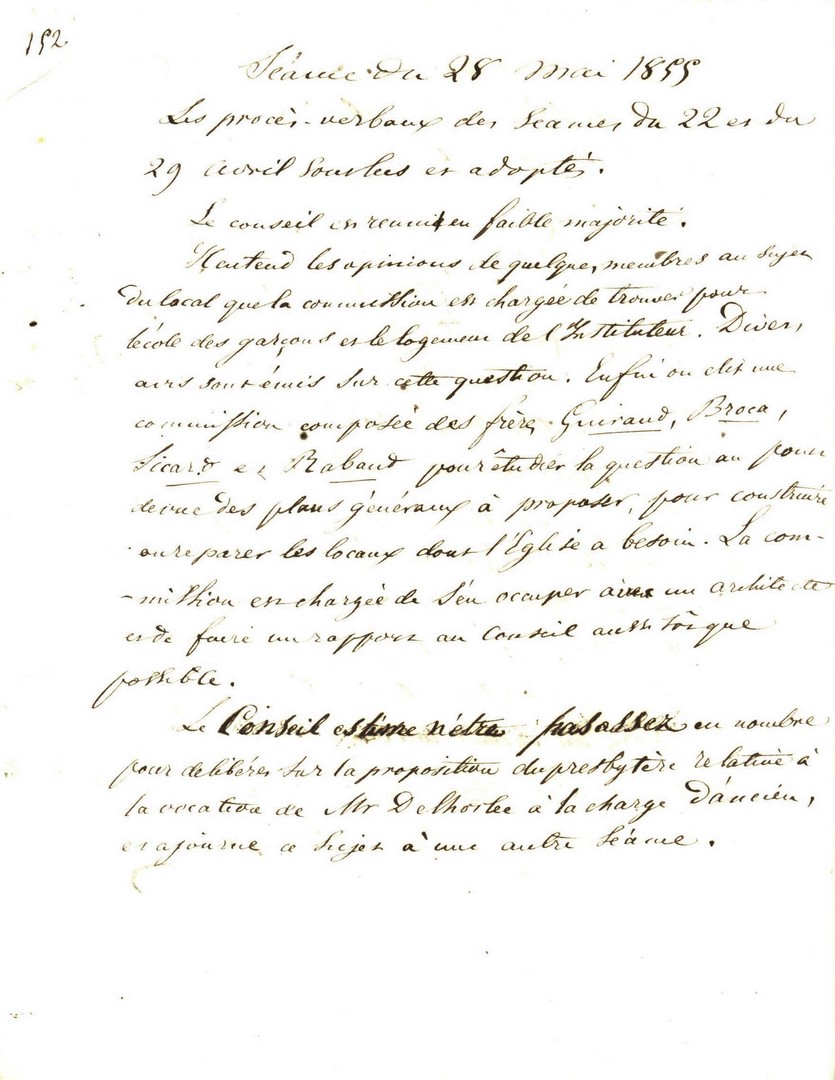 152.
Séance du 28 mai 1855
Les procès-verbaux des séances du 22 et du
29 avril sont lus et adoptés.
Le conseil est reuni en faible majorité.
Il entend les opinions de quelques membres au sujet
du local que la commission est chargée de trouver pour
l'école des garçons et le logement de l'Instituteur. Divers
avis sont émis sur cette question. Enfin on elit une
commission composée des frères Guiraud, Broca,
Sicard et Rabaud pour étudier la question au point
de vue des plans généraux à proposer, pour construire
ou reparer les locaux dont l'Eglise a besoin. La com-
-mission est chargée de s'en occuper avec un architecte
et de faire un rapport au Conseil aussi tôt que
possible.
Le Conseil estime n'être pas assez en nombre
pour delibérer sur la proposition du presbytère relative à
la vocation de Mr Delhorbe à la charge d'ancien,
et ajourne ce sujet à une autre séance.